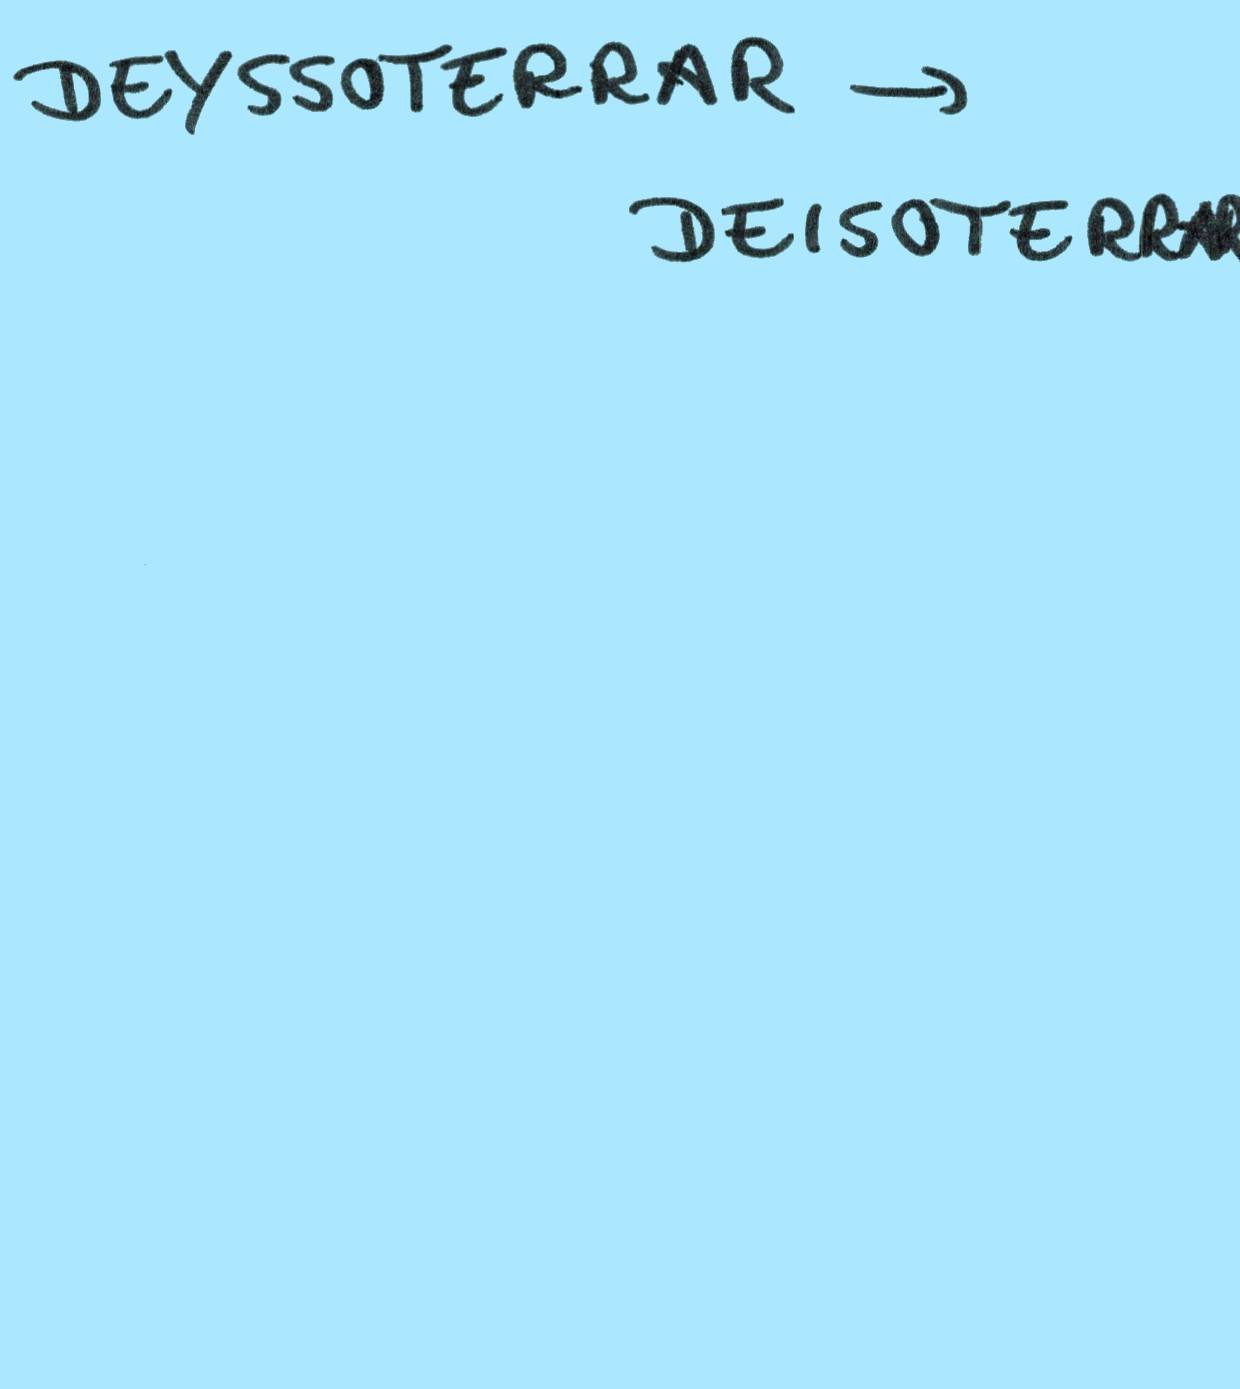 DEYSSOTERRAR →
DEISOTERRAR